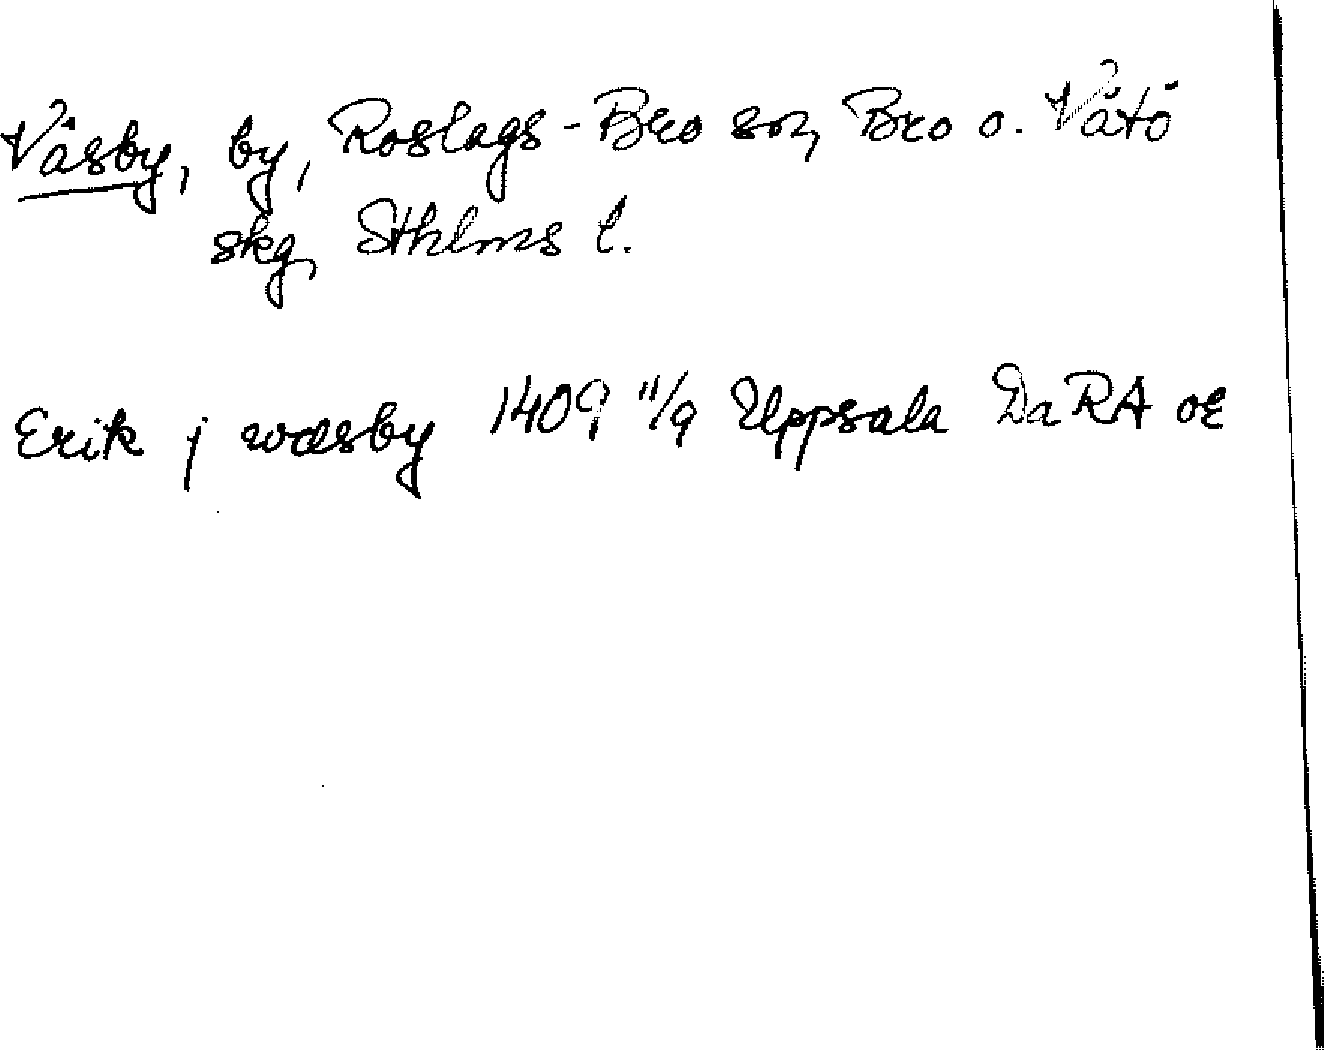 Väsby, by, Roslags-Bro sn, Bro o. Vätö
skg, Sthlms l.
Erik j wæsby 1409 11/9 Uppsala DaRA or